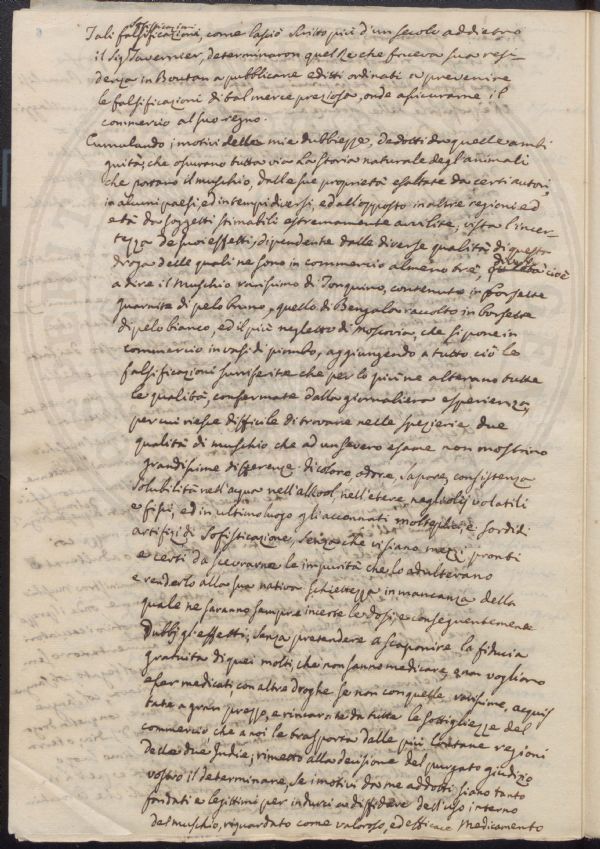 sofisticazioni
Tali falsificazioni, come lasciò scritto più d'un secolo addietro
il Sig. Tavernier, determinaron quel Re che faceva sua resi-
denza in Boutan a pubblicare editti ordinati a prevenire
le falsificazioni di tal merce preziosa, onde assicurarne il
commercio al suo regno.
Cumulando i motivi delle mie dubbiezze, dedotti da quelle ambi
guità, che oscurano tutta via la storia naturale degl'animali
che portano il muschio, dalle sue proprietà esaltate da certi autori,
in alcuni paesi, ed in tempi diversi, ed all'opposto in altre regioni ed
età da soggetti stimabili estremamente avvilite; vista l'incer-
tezza de suoi effetti, dipendente dalle diverse qualità di questa
droga delle quali ne sono in commercio almeno tre, cioè
a dire il Muschio rarissimo di Tonquino, contenuto in borsette
guarnite di pelo bruno, quello di Bengala raccolto in borsette
di pelo bianco, ed il più negletto di Moscovia, che si pone in
commercio in vasi di piombo, aggiungendo a tutto ciò le
falsificazioni surriferite che per lo più ne alterano tutte
le qualità, confermate dalla giornaliera esperienza,
per cui riesce difficile di trovare nelle spezierie due
qualità di muschio che ad un severo esame non mostrino
grandissime differenze di colore, odore, sapore, consistenza
solubilità nell'acqua nell'alkool, nell'etere, negl'olii volatili
e fissi, ed in ultimo luogo gli accennati molteplici, e sordidi
artifizi di sofisticazione, senza che vi siano mezzi pronti
e certi da scevrarne le impurità che lo adulterano
e renderlo alla sua nativa schiettezza in mancanza della
quale ne saranno sempre incerte le dosi, e conseguentemente
dubbj gl'effetti; senza pretendere a scaponire la fiducia
gratuita di quei molti, che non sanno medicare, e non vogliono
esser medicati, con altre droghe se non con quelle rarissime, acquis
tate a gran prezzo, e rimarcate da tutte le sottigliezze del
commercio, che a noi le trasporta dalle più lontane regioni
delle due Indie; rimetto alla decisione del purgato giudizio
vostro il determinare, se i motivi da me addotti siano tanto
fondati e legittimi per indurci a diffidare dell'uso interno
del muschio, riguardato come valoroso, ed efficace medicamento